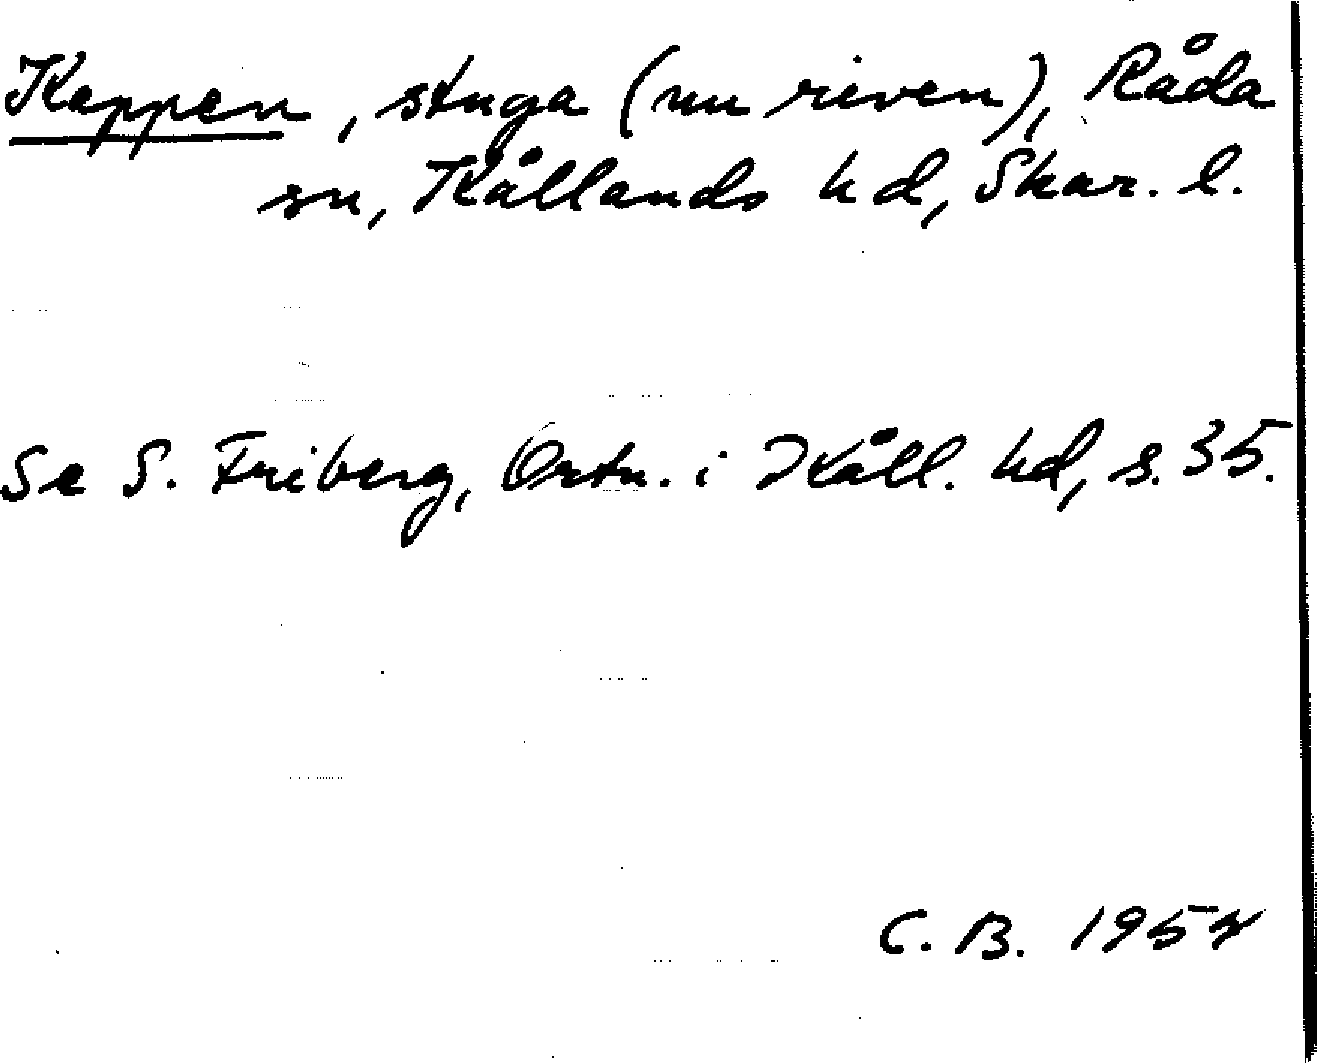 Keppen, stuga (nu riven), Råda
sn, Kållands hd, Skar. l.
Se S. Friberg, Ortn. i Kåll. hd, s. 35.
C. B. 1952